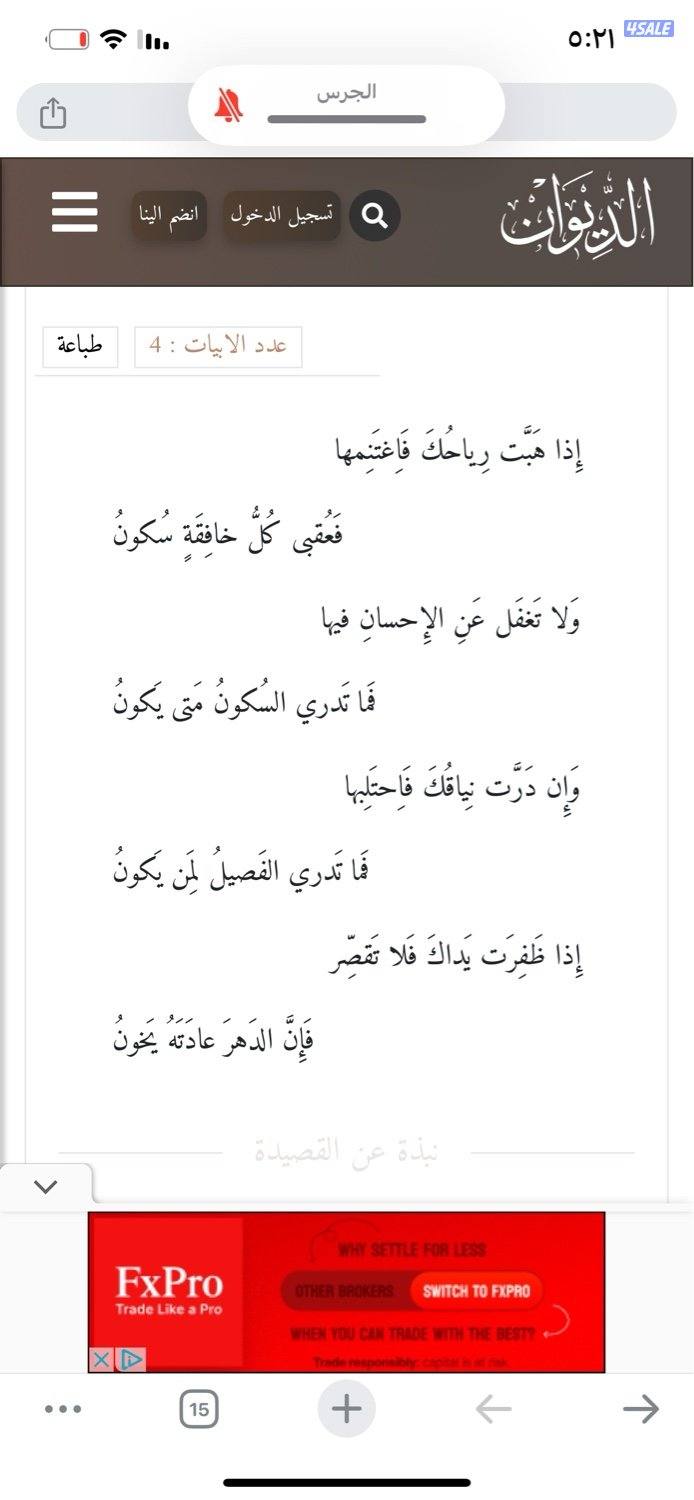 ٥:٢١
4SALE
الجرس
الدِّيوَان
تسجيل الدخول
انضم الينا
عدد الابيات : 4
طباعة
إِذا هَبَّت رِياحُكَ فَاِغتَنِمها
فَعُقبى كُلُّ خافِقَةٍ سُكونُ
وَلا تَغفَل عَنِ الإِحسانِ فيها
فَما تَدري السُكونُ مَتى يَكونُ
وَإِن دَرَّت نِياقُكَ فَاِحتَلِبها
فَما تَدري الفَصيلُ لِمَن يَكونُ
إِذا ظَفِرَت يَداكَ فَلا تَقصِّر
فَإِنَّ الدَهرَ عادَتَهُ يَخونُ
نبذة عن القصيدة
FxPro
Trade Like a Pro
WHY SETTLE FOR LESS
OTHER BROKERS
SWITCH TO FXPRO
WHEN YOU CAN TRADE WITH THE BEST?
Trade responsibly: capital is at risk
15